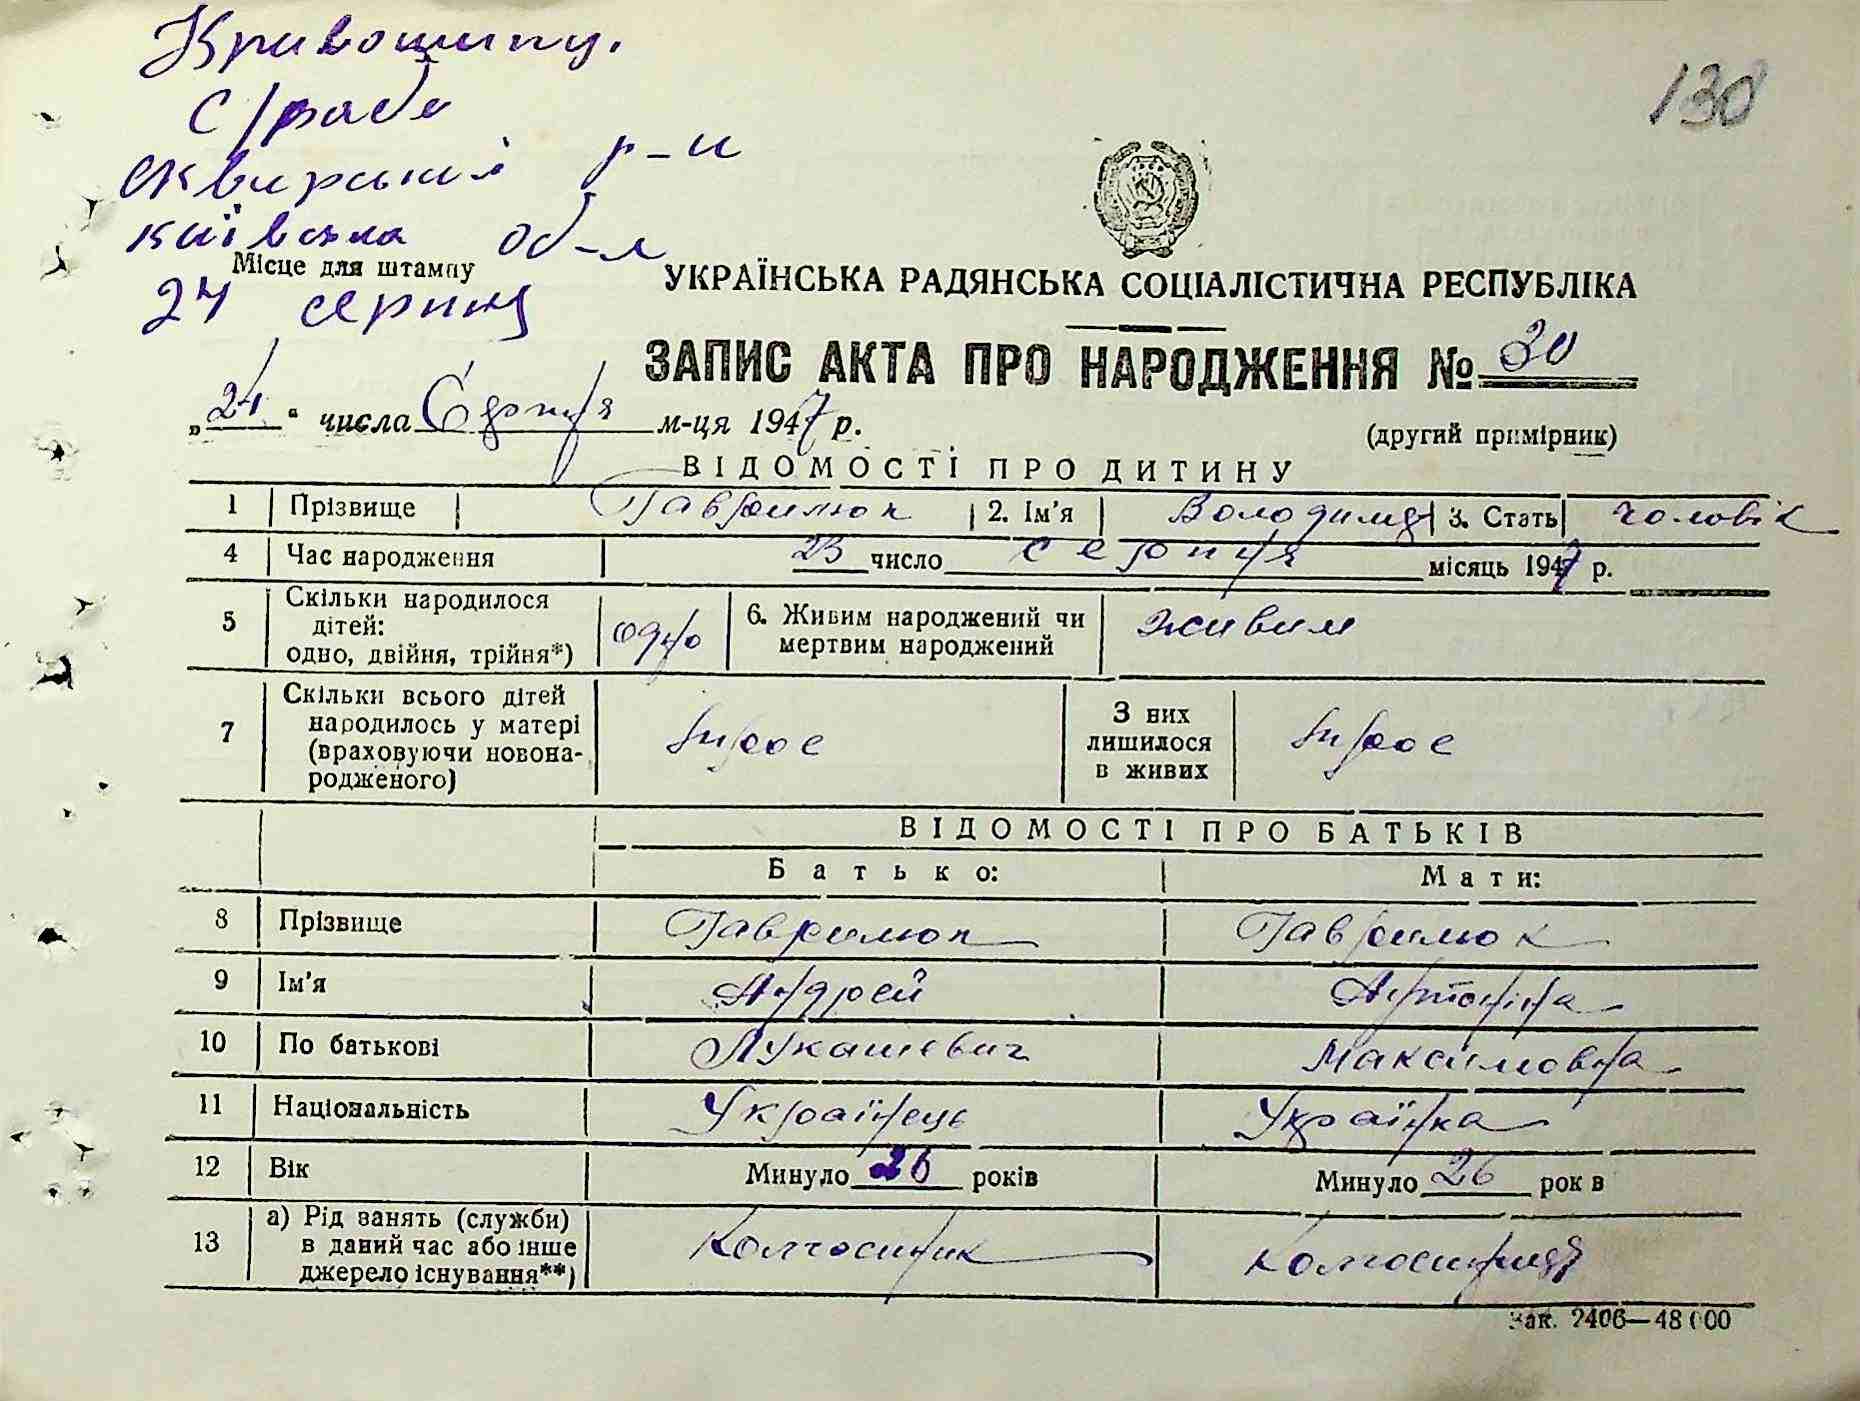 Кривошипу.
с/рада
Сквирський р-н
київська об-л
Місце для штампу
24 серпня
130
УКРАЇНСЬКА РАДЯНСЬКА СОЦІАЛІСТИЧНА РЕСПУБЛІКА
ЗАПИС АКТА ПРО НАРОДЖЕННЯ № 30
„24“ числа Серпня м-ця 1947 р.
(другий примірник)
ВІДОМОСТІ ПРО ДИТИНУ
1 Прізвище Гаврилюк 2. Ім'я Володимир 3. Стать чоловік
4 Час народження 23 число серпня місяць 1947 р.
5 Скільки народилося дітей: одно, двійня, трійня*) одно 6. Живим народжений чи мертвим народжений живим
7 Скільки всього дітей народилось у матері (враховуючи новонародженого) двоє З них лишилося в живих двоє
ВІДОМОСТІ ПРО БАТЬКІВ
Батько: Мати:
8 Прізвище Гаврилюк Гаврилюк
9 Ім'я Андрей Антоніна
10 По батькові Лукашевич Максимовна
11 Національність Українець Українка
12 Вік Минуло 26 років Минуло 26 рок в
13 а) Рід занять (служби) в даний час або інше джерело існування**) Колгоспник колгоспниця
Зак. 2406—48000